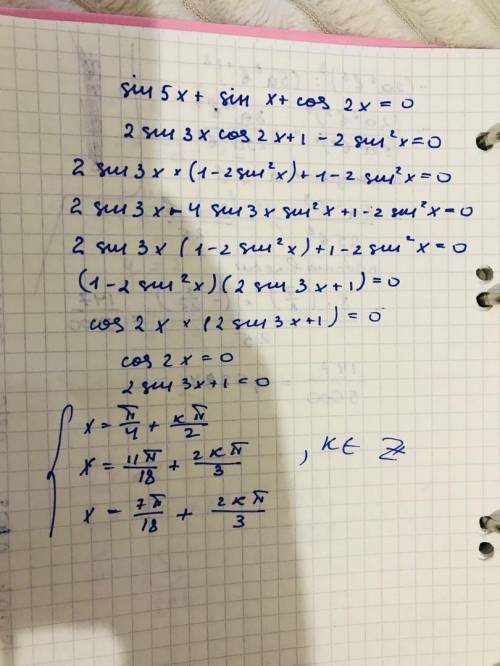 sin 5x + sin x + cos 2x = 0
2 sin 3x cos 2x + 1 - 2 sin²x = 0
2 sin 3x × (1 - 2 sin²x) + 1 - 2 sin²x = 0
2 sin 3x - 4 sin 3x sin²x + 1 - 2 sin²x = 0
2 sin 3x (1 - 2 sin²x) + 1 - 2 sin²x = 0
(1 - 2 sin²x)(2 sin 3x + 1) = 0
cos 2x × (2 sin 3x + 1) = 0
cos 2x = 0
2 sin 3x + 1 = 0
{ x = π/4 + kπ/2
x = 11π/18 + 2kπ/3 , k ∈ Z
x = 7π/18 + 2kπ/3